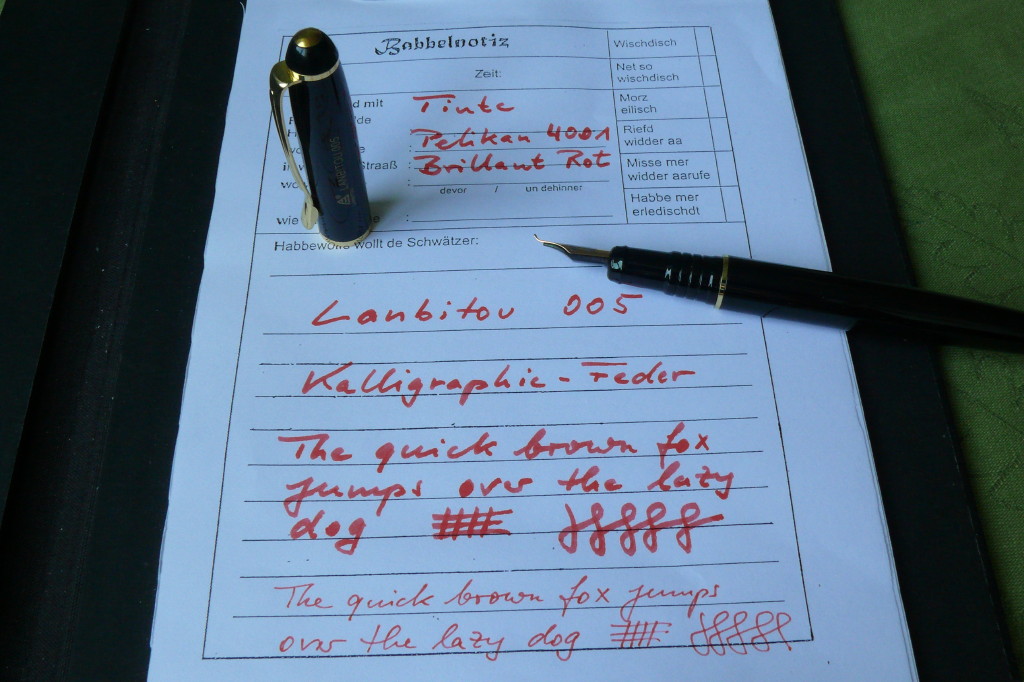 Babbelnotiz
Wischdisch
Zeit:
Net so
wischdisch
Morz
eilisch
Riefd
widder aa
Misse mer
widder aarufe
Habbe mer
erledischdt
d mit
Tinte
Pelikan 4001
Straaß :
Brillant Rot
devor / un dehinner
wie
:
Habbe wollt de Schwätzer:
Lanbitou 005
Kalligraphie-Feder
The quick brown fox
jumps over the lazy
dog
The quick brown fox jumps
over the lazy dog